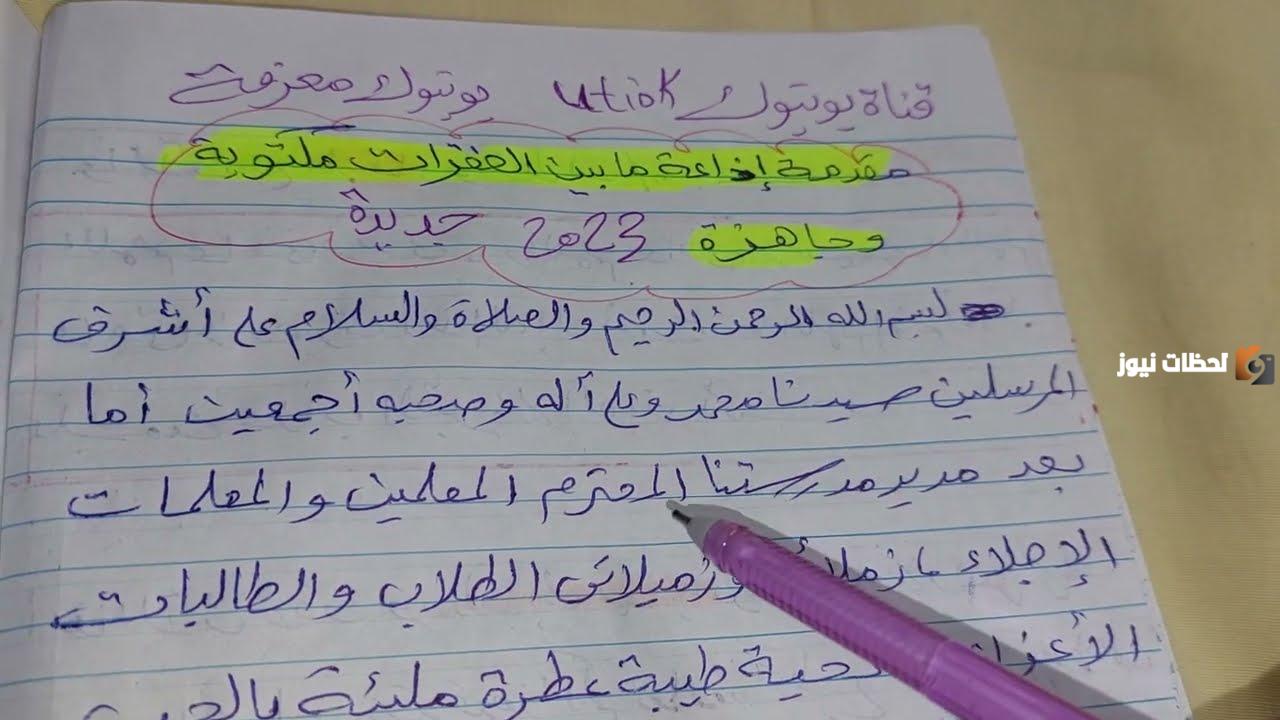 قناة يوتيوك utiok يوتيوك معرفة
مقدمة إذاعة ما بين الفقرات مكتوبة
وجاهزة 2023 جديدة
بسم الله الرحمن الرحيم والصلاة والسلام على أشرف
المرسلين سيدنا محمد وعلى آله وصحبه أجمعين أما
بعد مدير مدرستنا المحترم المعلمين والمعلمات
الإجلاء، وزميلاتي الطلاب والطالبات
طيبة عطرة مليئة
لحظات نيوز